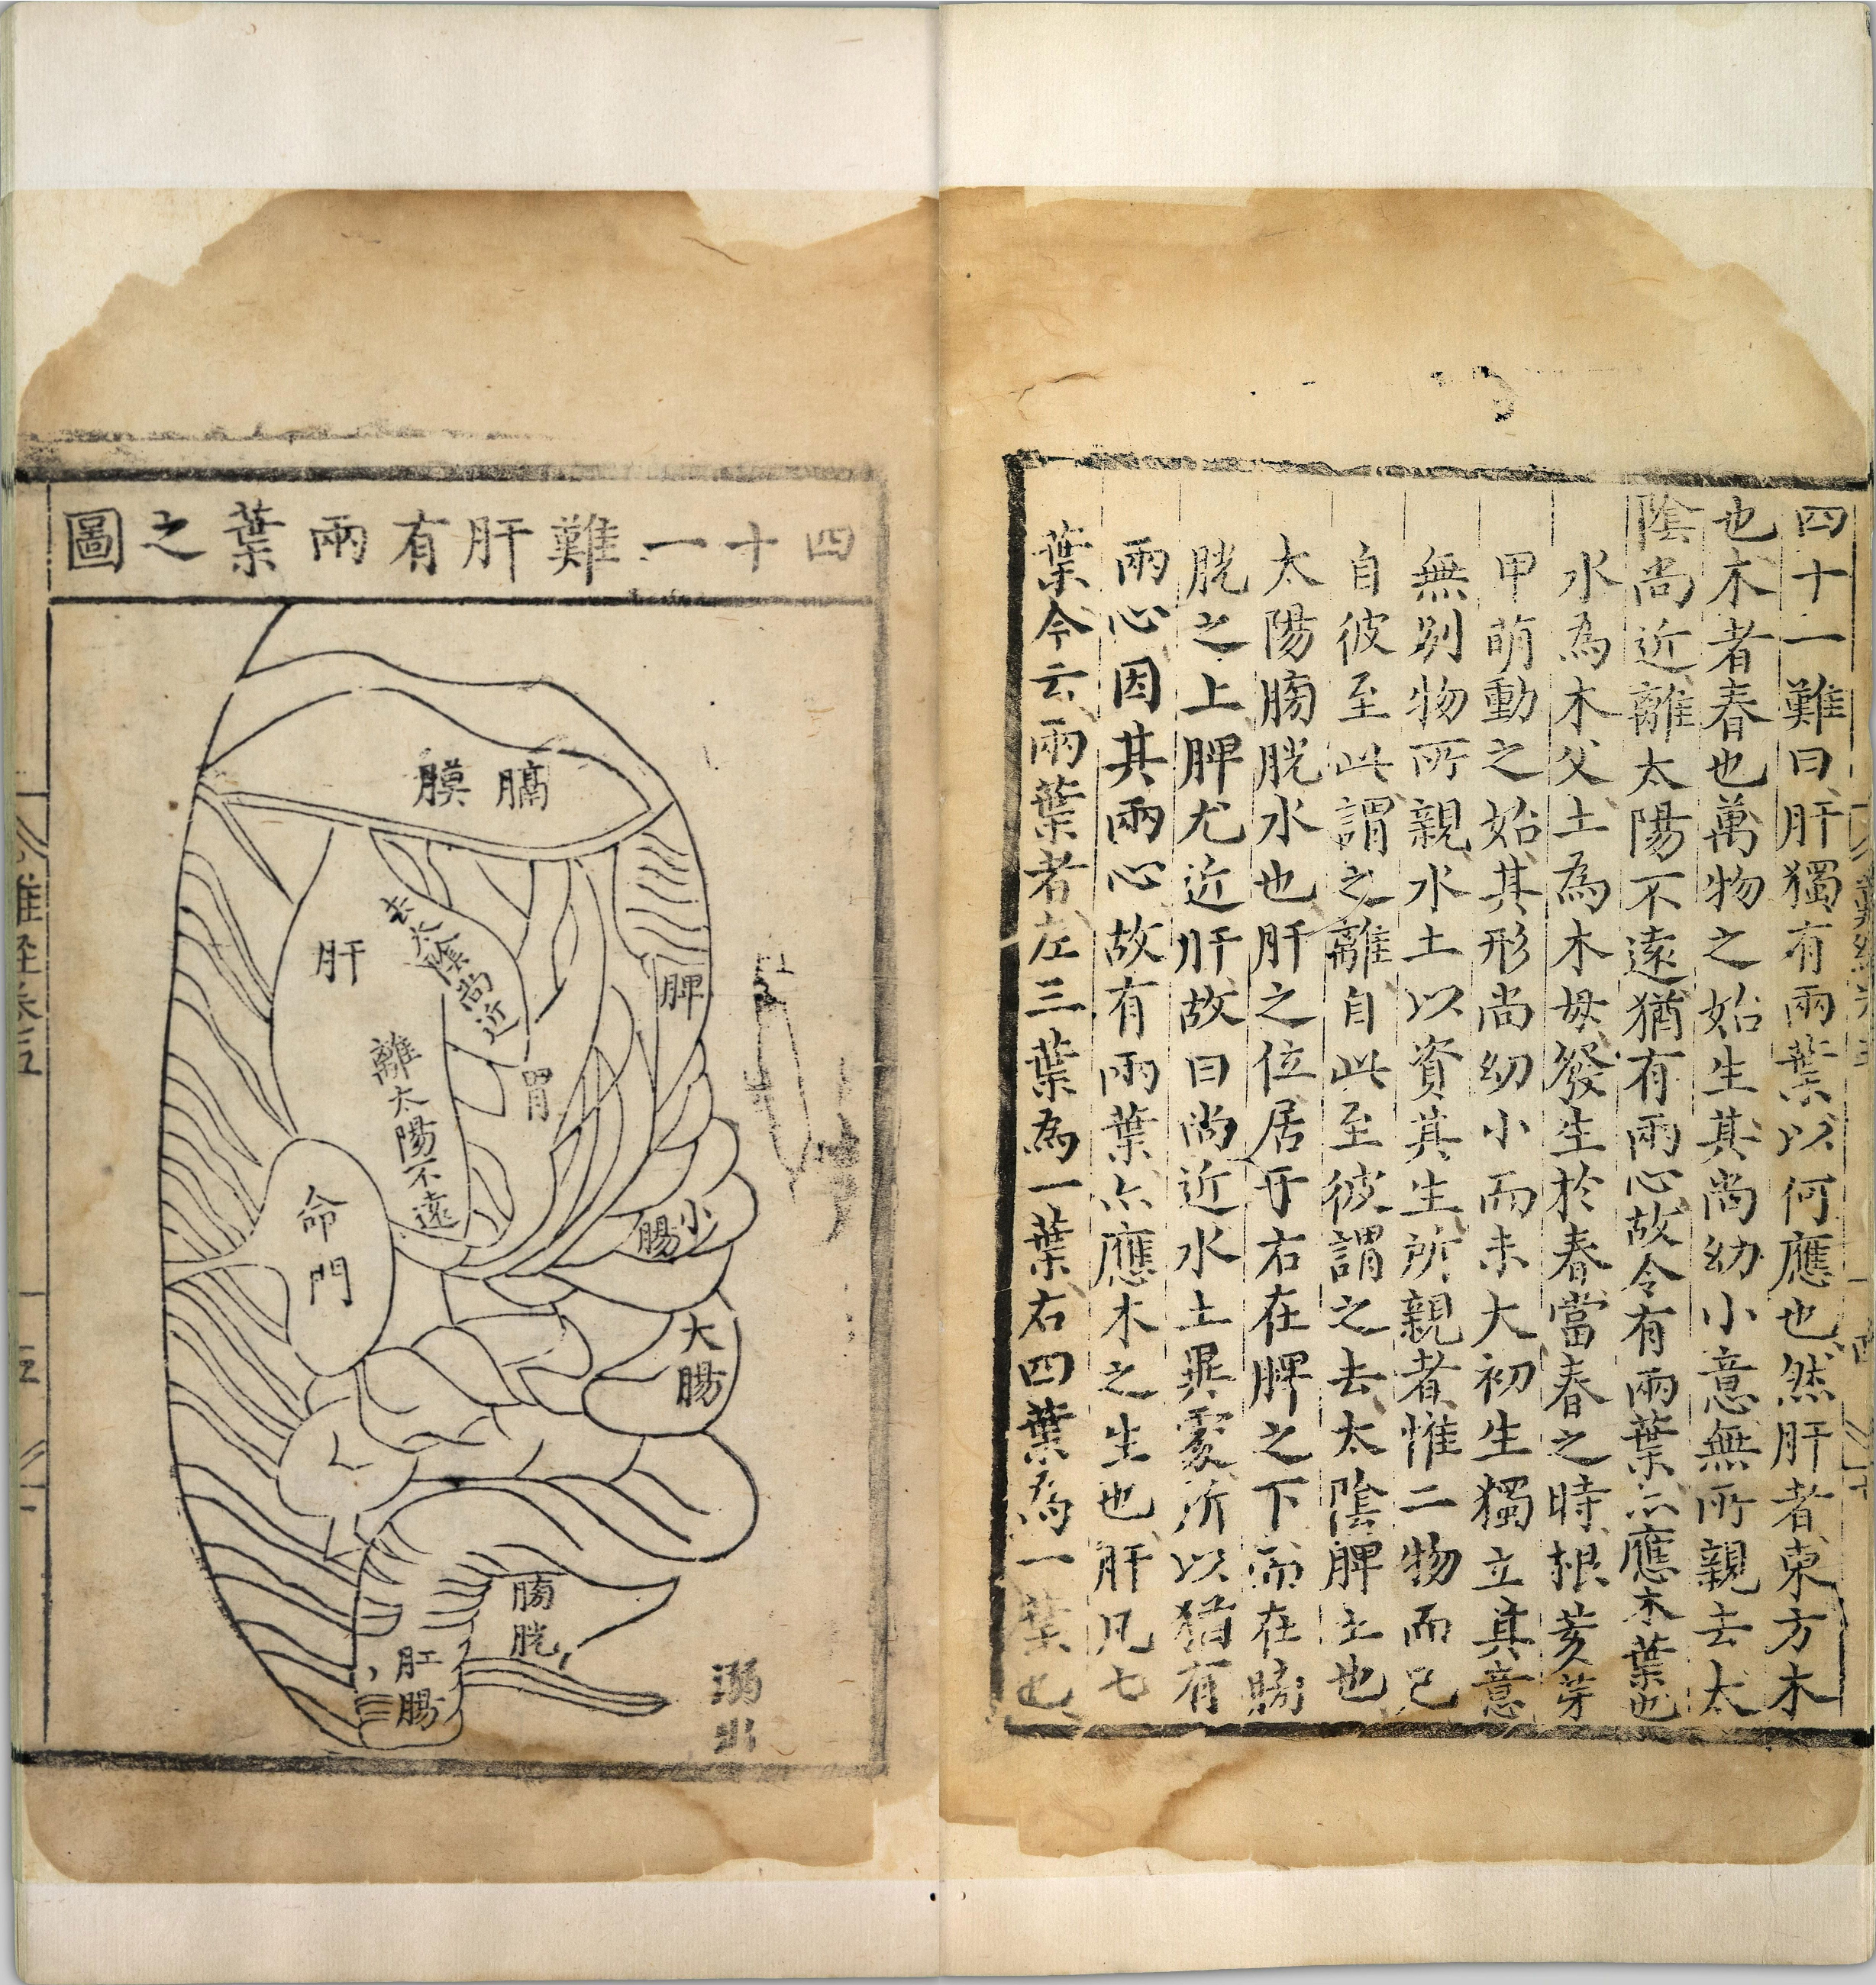 四十一難曰肝獨有兩葉以何應也然肝者東方木
也木者春也萬物之始生其尚幼小意無所親去太
陰尚近離太陽不遠猶有兩心故令有兩葉亦應木葉也
水為木父土為木母發生於春當春之時根荄芽
甲萌動之始其形尚幼小而未大初生獨立其意
無別物所親水土以資其生所親者惟二物而已
自彼至此謂之離自此至彼謂之去太陰脾土也
太陽膀胱水也肝之位居于右在脾之下而在膀
胱之上脾尤近肝故曰尚近水土異處所以猶有
兩心因其兩心故有兩葉亦應木之生也肝凡七
葉今云兩葉者左三葉為一葉右四葉為一葉也
四十一難肝有兩葉之圖
膈膜
肝
去太陰尚近
離太陽不遠
脾
胃
命門
小腸
大腸
膀胱
肛腸
溺出